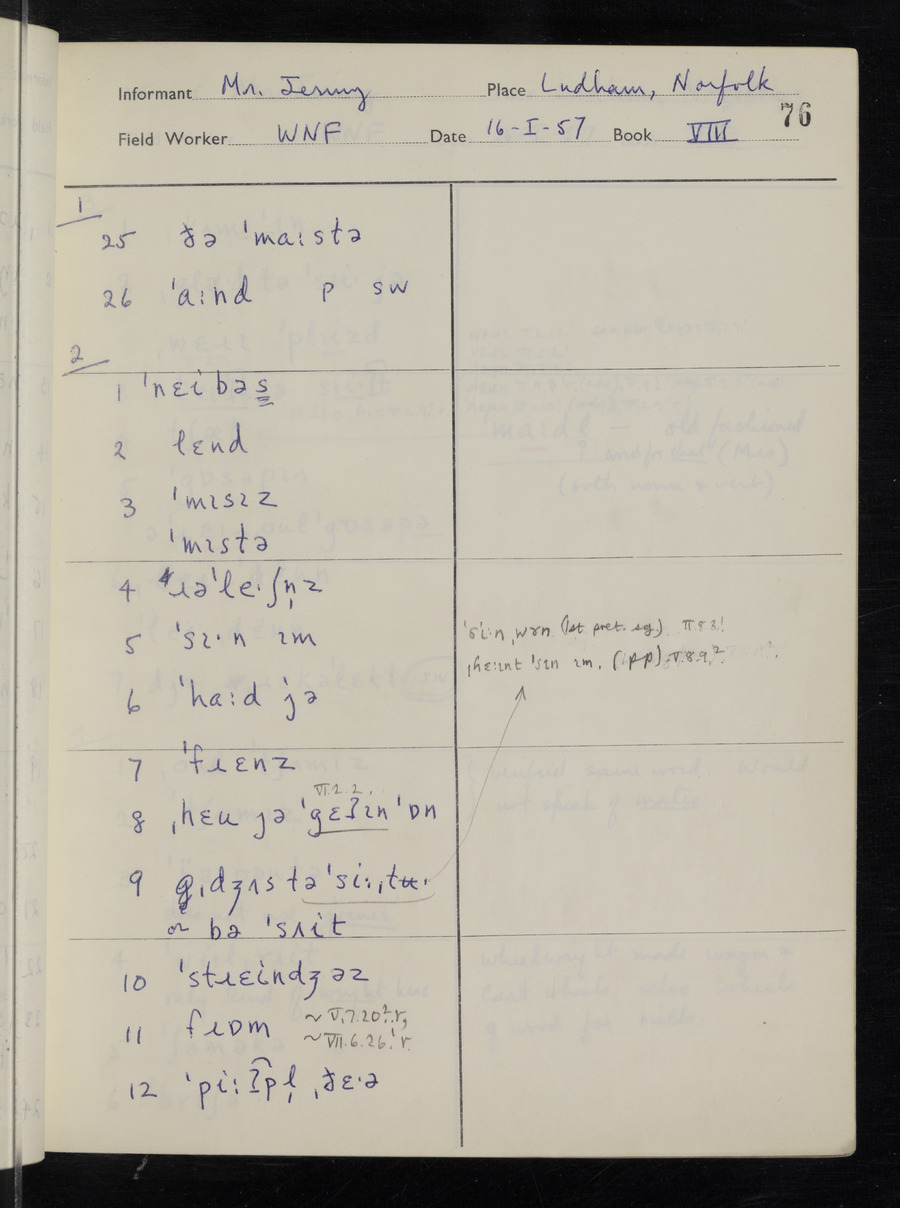 Informant Mr. Jermy Place Ludham, Norfolk
76
Field Worker WNF Date 16-I-57 Book VIII
1
25 ðə ˈmaːstə
26 ˈaːnd p sw
2
1 ˈnɛibəs
2 lɛnd
3 ˈmɪsɪz
ˈmɪstə
4 ɹəˈle·ʃn̩z
5 ˈsɪ·n ɪm
6 ˈhaːd jə
7 ˈfɹɛnz
VI.2.2.
8 ˌhɛu jə ˈgɛʔɪn ˈɒn
9 ˌdʒʌs tə ˈsiːˌtʉ·
or bə ˈsʌit
10 ˈstɹɛindʒəz
11 fɹɒm ~ V.7.20².r,
~ VII.6.26.¹r.
12 ˈpiːʔpl̩ ˌðɛ·ə
(1st pret. sg.)
ˈsɪn ɪm. (pp) V.8.9.²